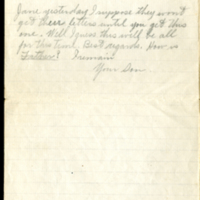 Jane yesterday I suppose they won't
get there letters until you get this
one. Well I guess this will be all
for this time. Best regards. How is
Father? I remain
Your Son